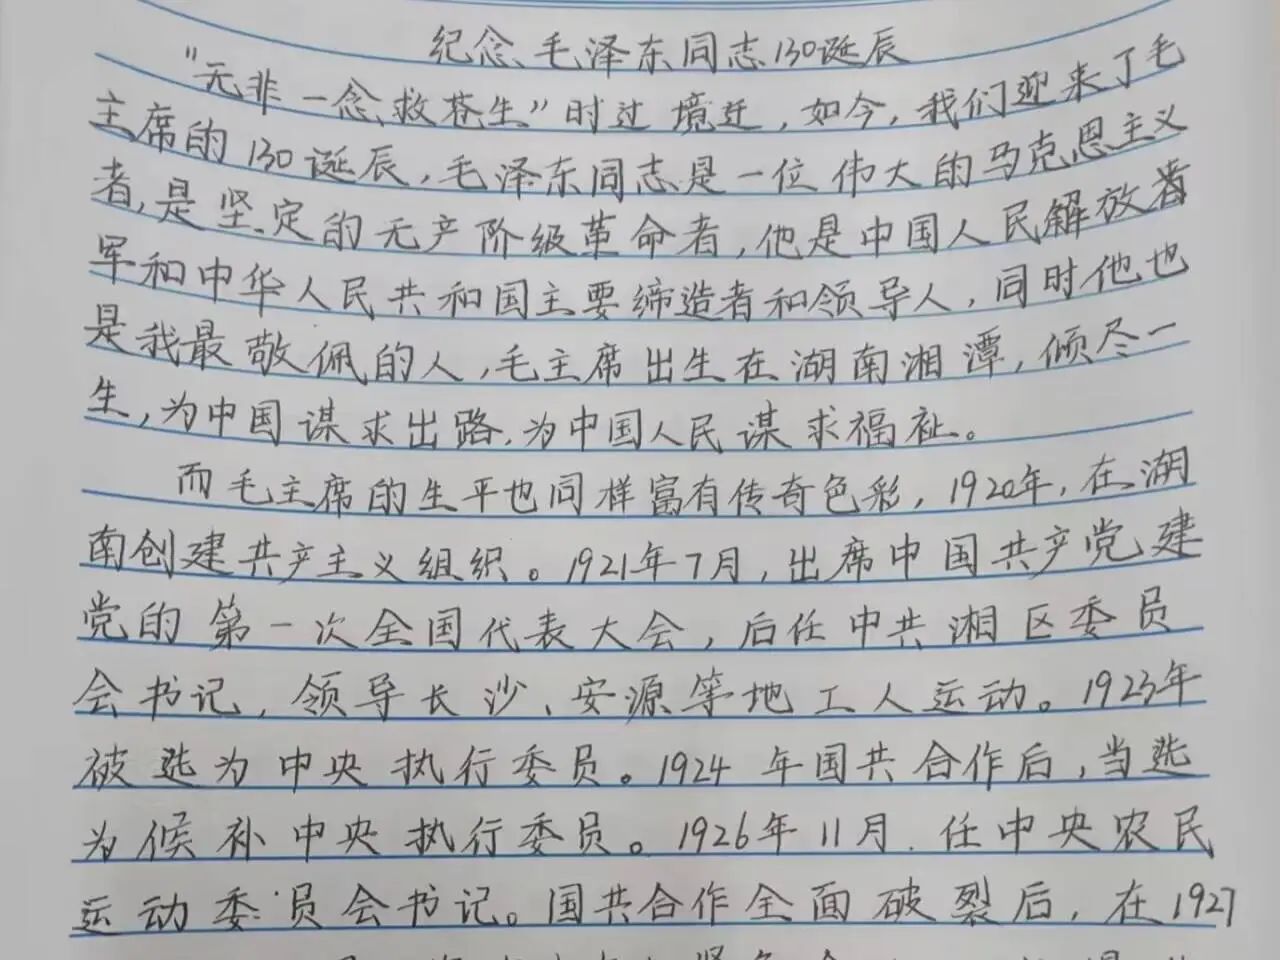 纪念毛泽东同志130诞辰
“无非一念救苍生”时过境迁，如今，我们迎来了毛
主席的130诞辰，毛泽东同志是一位伟大的马克思主义
者，是坚定的无产阶级革命者，他是中国人民解放着
军和中华人民共和国主要缔造者和领导人，同时他也
是我最敬佩的人，毛主席出生在湖南湘潭，倾尽一
生，为中国谋求出路，为中国人民谋求福祉。
而毛主席的生平也同样富有传奇色彩，1920年，在湖
南创建共产主义组织。1921年7月，出席中国共产党建
党的第一次全国代表大会，后任中共湘区委员
会书记，领导长沙、安源等地工人运动。1923年
被选为中央执行委员。1924年国共合作后，当选
为候补中央执行委员。1926年11月.任中央农民
运动委员会书记。国共合作全面破裂后，在1927